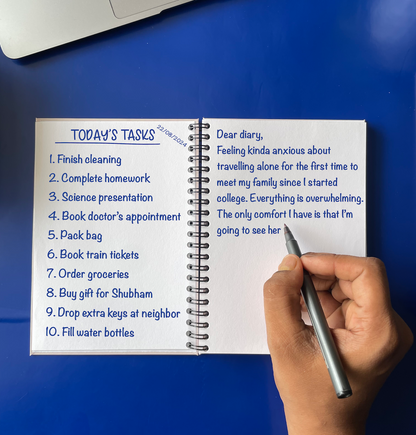 TODAY'S TASKS
22/08/2024
1. Finish cleaning
2. Complete homework
3. Science presentation
4. Book doctor's appointment
5. Pack bag
6. Book train tickets
7. Order groceries
8. Buy gift for Shubham
9. Drop extra keys at neighbor
10. Fill water bottles
Dear diary,
Feeling kinda anxious about
travelling alone for the first time to
meet my family since I started
college. Everything is overwhelming.
The only comfort I have is that I'm
going to see her